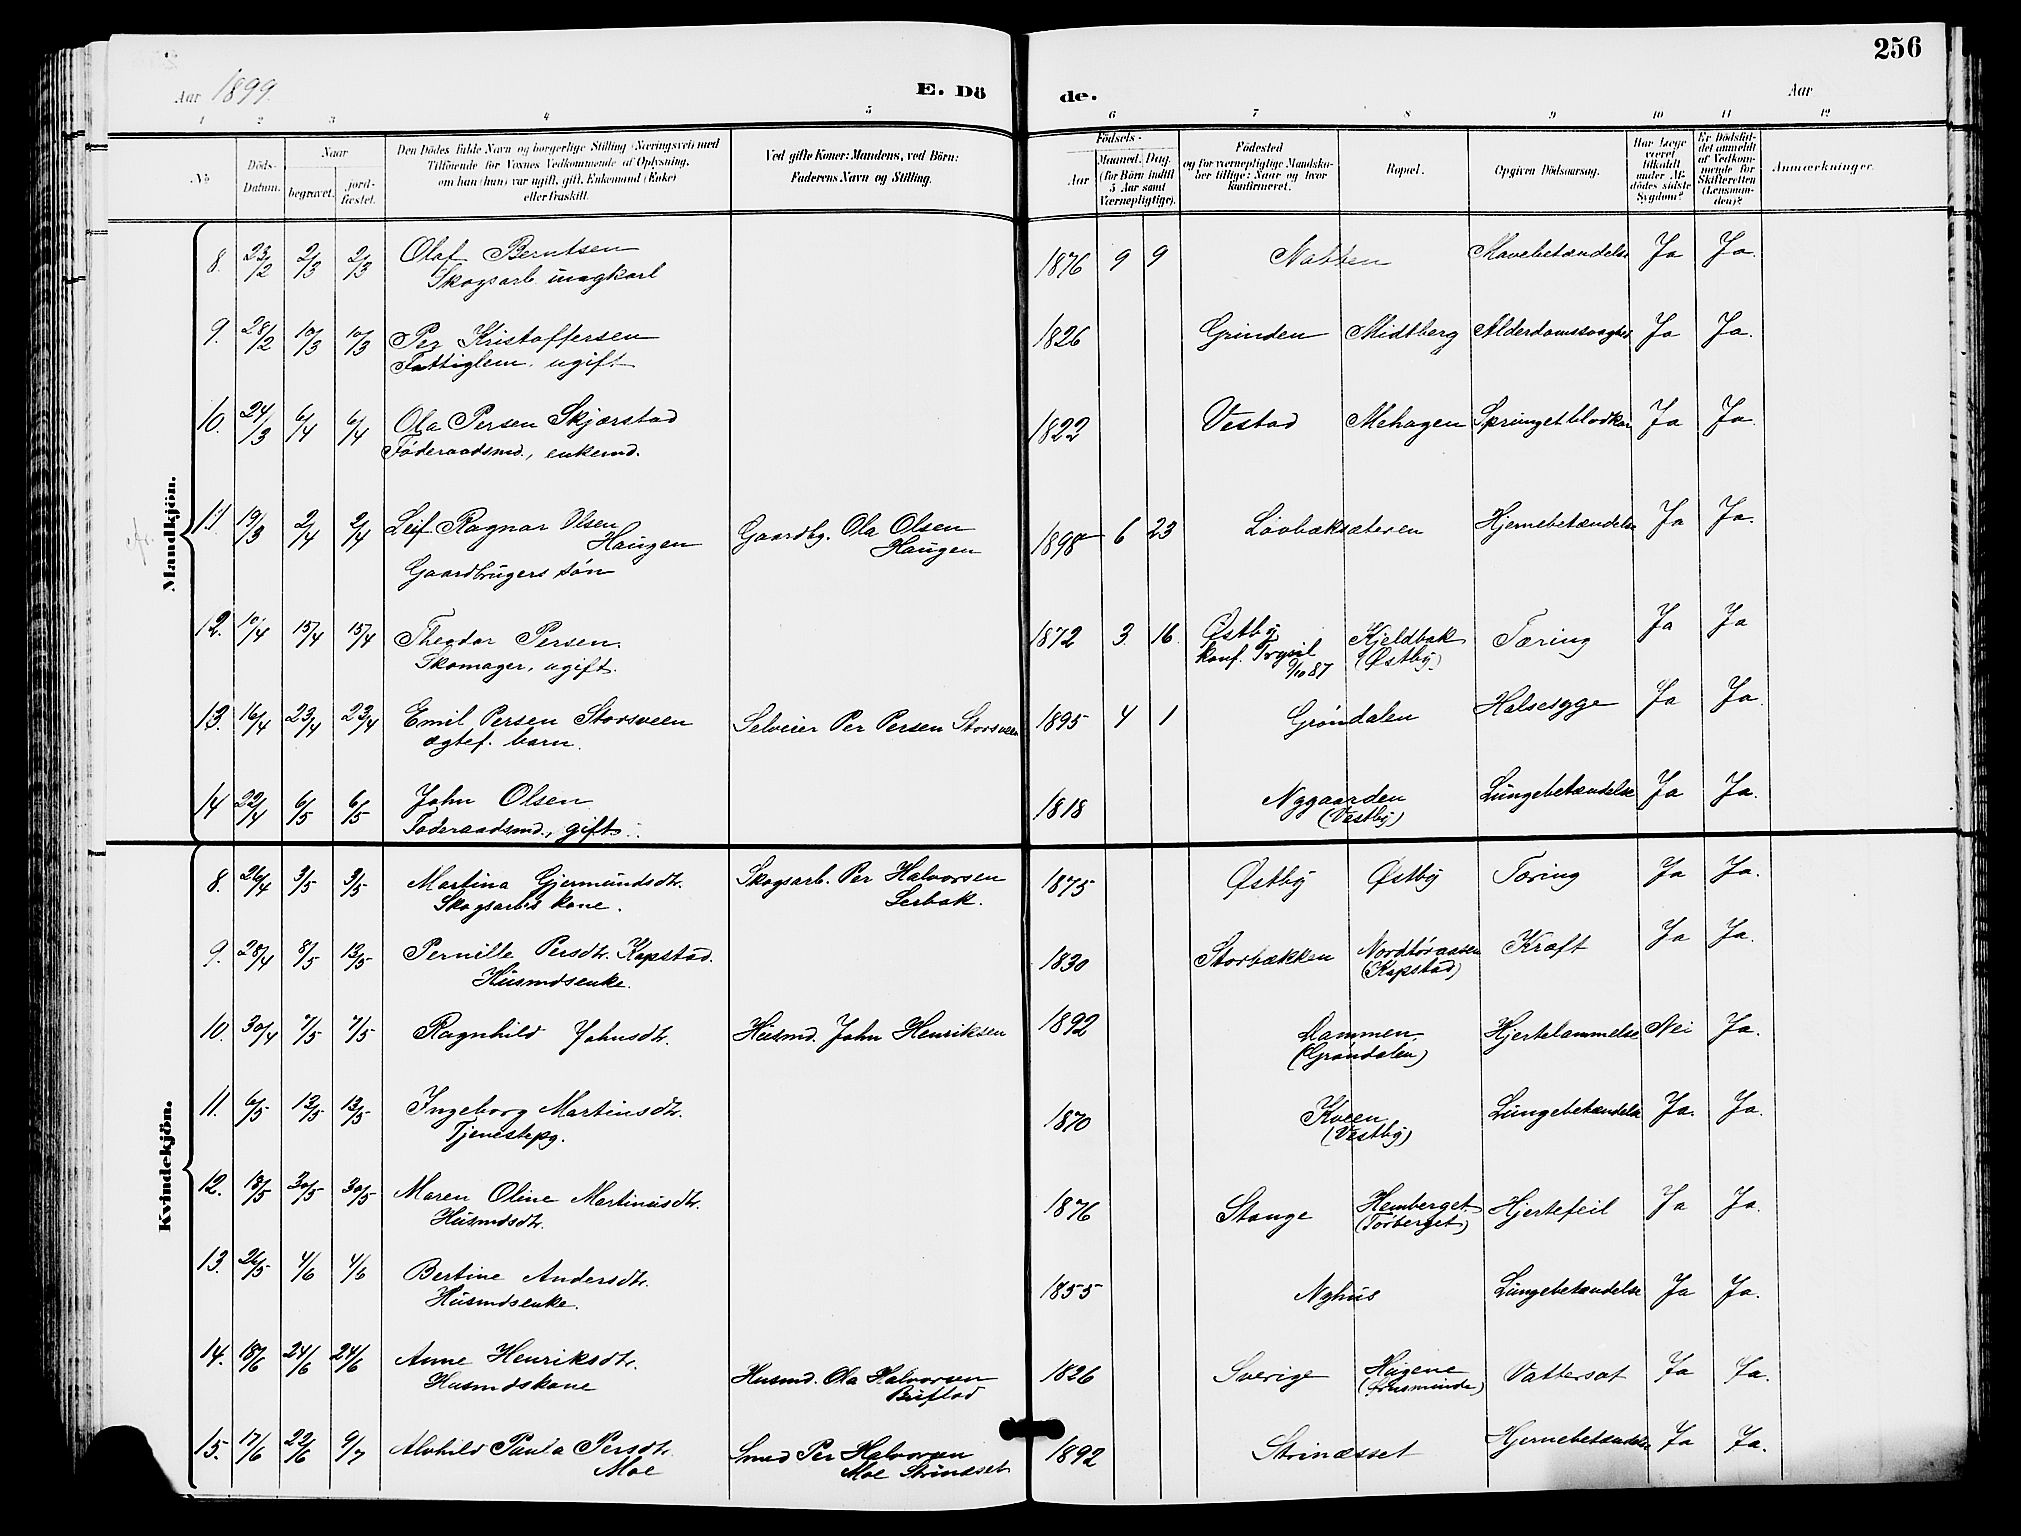 256
Aar 1899.
E. Dö
de.
Aar
1 2 3 4 5 6 7 8 9 10 11 12
No
Döds-Datum.
Naar
begravet.
jord-fæstet.
Den Dödes fulde Navn og borgerlige Stilling (Næringsvei) med
Tilföiende for Voxnes Vedkommende af Oplysning,
om han (hun) var ugift, gift, Enkemand (Enke)
eller fraskilt.
Ved gifte Koner: Mandens, ved Börn:
Faderens Navn og Stilling.
Födsels-
Aar
Maaned. Dag.
(for Börn indtil
5 Aar samt
Værnepligtige).
Födested
og for værnepligtige Mandska-
ber tillige: Naar og hvor
konfirmeret.
Bopæl.
Opgiven Dödsaarsag.
Har Læge
været
tilkaldt
under Af-
dödes sidste
Sygdom?
Er Dödsfal-
det anmeldt
af Vedkom-
mende for
Skifteretten
(Lensman-
den)?
Anmærkninger.
Mandkjön.
8. 23/2 2/3 2/3 Olaf Berntsen 1876 9 9 Natten Mavebetændelse Ja Ja.
Skogsarb. ungkarl
9. 28/2 10/3 10/3 Per Kristoffersen 1826 Grinden Midtberg Alderdomssvaghed Ja Ja.
Fattiglem, ugift
10. 24/3 6/4 6/4 Ola Persen Skjærstad 1822 Vestad Mehagen Sprunget blodkar Ja Ja.
Føderaadsmd., enkemd.
11 19/3 2/4 2/4 Leif Ragnar Olsen Haugen Gaardbg. Ola Olsen Haugen 1898 6 23 Løvbæksæteren Hjernebetændelse Ja Ja.
Gaardbrugers søn
12. 10/4 15/4 15/4 Theodor Persen. 1872 3. 16. Østby Kjeldbak Tæring Ja Ja
Skomager, ugift. konf. Trysil 2/10 87 (Østby)
13. 16/4 23/4 23/4 Emil Persen Storsveen Selveier Per Persen Storsveen 1895 4 1 Grøndalen Halsesyge Ja Ja.
ægtef. barn.
14 22/4 6/5 6/5 John Olsen 1818 Nygaarden Lungebetændelse Ja Ja.
Føderaadsmd., gift. (Vestby)
Kvindekjön.
8. 26/4 3/5 3/5 Martina Gjermundsdtr. Skogsarb. Per Halvorsen 1875 Østby Østby Tæring Ja Ja.
Skogsarbs kone. Lerbak.
9. 28/4 8/5 13/5 Pernille Persdtr. Kapstad. 1830 Storbækken Nordtøraasen Kræft Ja Ja.
Husmdsenke. (Kapstad)
10. 30/4 7/5 7/5 Ragnhild Johnsdtr. Husmd. John Henriksen 1892 Dammen Hjertelammelse Nei Ja.
(Grøndalen)
11. 6/5 13/5 13/5 Ingeborg Martinsdtr. 1870 Kveen Lungebetændelse Ja. Ja.
Tjenestepg. (Vestby)
12. 18/5 30/5 30/5 Maren Oline Martinusdtr. 1876 Stange Hemberget Hjertefeil Ja Ja.
Husmdsdtr. (Tørberget)
13. 26/5 4/6 4/6 Bertine Andersdtr. 1855 Nyhus Lungebetændelse Ja Ja.
Husmdsenke.
14. 18/6 24/6 24/6 Anne Henriksdtr. Husmd. Ola Halvorsen 1826 Sverige Hugene Vattersot Ja Ja.
Husmdskone Buflod
15. 17/6 22/6 9/7 Alvhild Paula Persdtr. Smed Per Halvorsen 1892 Strinæsset Hjernebetændelse Ja Ja.
Moe Moe Strinæset